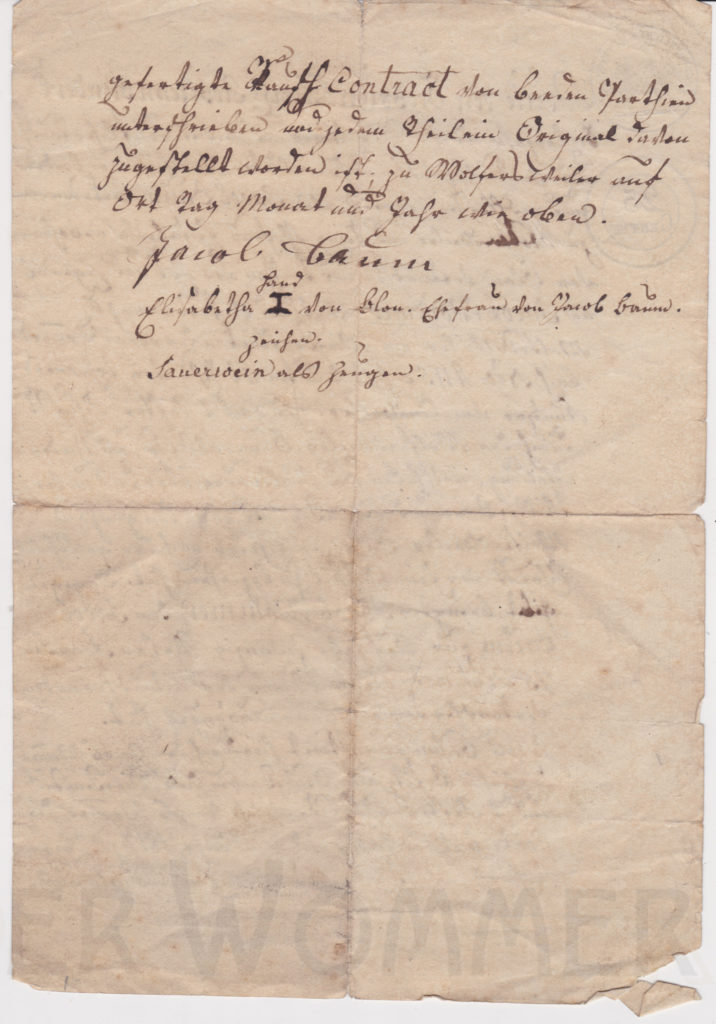 gefertigte Kauf Contract von beeden Parthien
unterschrieben und jedem Theil ein Original davon
zugestellt worden ist, zu Wolfersweiler auf
Ort Tag Monat und Jahr wie oben.
Jacob Baum
Hand
Elisabetha I von Blon. Ehefrau von Jacob Baum.
zeichen.
Sauerwein als Zeugen.
ER WOMMER